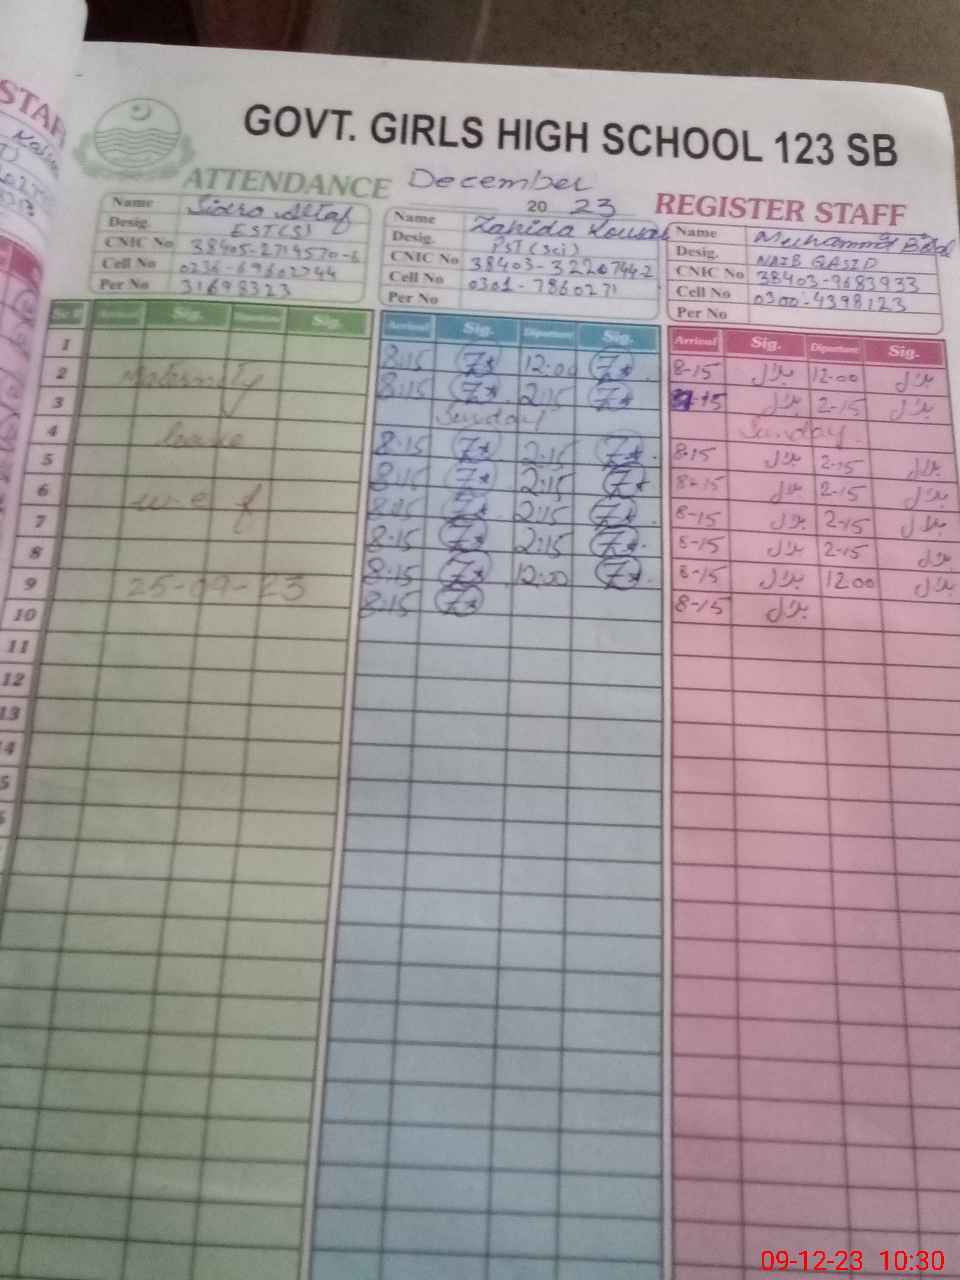 GOVT. GIRLS HIGH SCHOOL 123 SB
ATTENDANCE December 2023 REGISTER STAFF
Name Sidra Altaf
Desig. EST(S)
CNIC No 38405-2714570-6
Cell No 0236-69602744
Per No 31698323
Name Zahida Kousar
Desig. PST (Sci)
CNIC No 38403-3220744-2
Cell No 0301-7860271
Per No
Name Muhammad Bilal
Desig. NAIB QASID
CNIC No 38403-9683933
Cell No 0300-4398123
Per No
Sr.# Arrival Sig. Diparture Sig. Arrival Sig. Diparture Sig. Arrival Sig. Diparture Sig.
1 8:15 12:00 8-15 12-00
2 Maternity 8:15 2:15 8-15 2-15
3 Sunday Sunday
4 leave 8:15 2:15 8-15 2-15
5 8:15 2:15 8-15 2-15
6 w-e-f 8:15 2:15 8-15 2-15
7 8:15 2:15 8-15 2-15
8 8:15 12:00 8-15 12:00
9 25-09-23 8:15 8-15
10
11
12
13
09-12-23 10:30